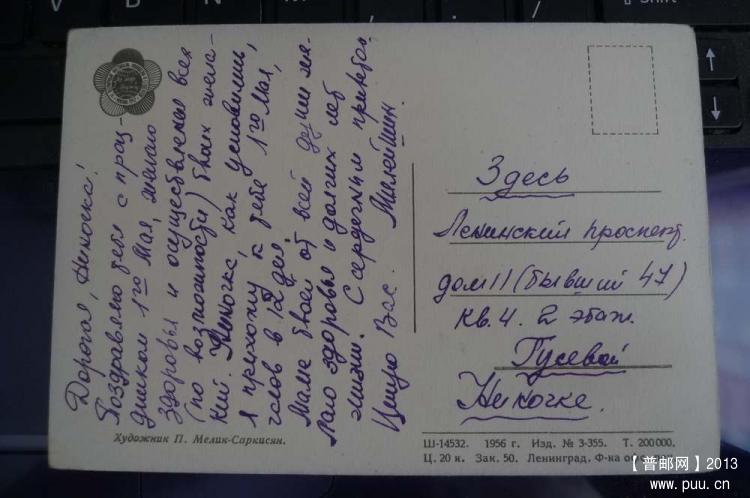 Дорогая, Ниночка!
Поздравляю тебя с празд-
дником 1го Мая, желаю
здоровья и осуществления всех
(по возможности) твоих жела-
ний. Ниночка, как условились,
я прихожу к тебе 1го Мая,
часов в 12 дня.
Маме твоей от всей души же-
лаю здоровья и долгих лет
жизни. С сердечным приветом,
Целую Вас.
Здесь
Ленинский проспект.
дом 11 (бывший 47)
кв. 4. 2 этаж.
Гусевой
Ниночке.
Художник П. Мелик-Саркисян.
Ш-14532. 1956 г. Изд. № 3-355. Т. 200000.
Ц. 20 к. Зак. 50. Ленинград. Ф-ка
【普邮网】2013
www.puu.cn
Shift